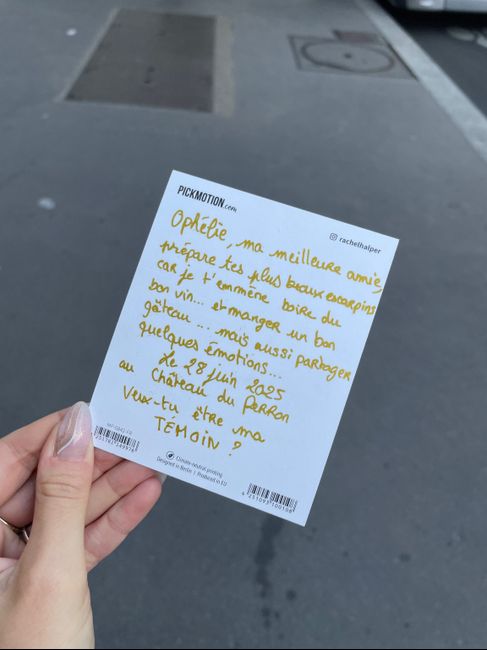 PICKMOTION.com
rachelhalper
Ophélie, ma meilleure amie,
prépare tes plus beaux escarpins
car je t'emmène boire du
bon vin... et manger un bon
gâteau ... mais aussi partager
quelques émotions...
Le 28 juin 2025
au Château du Perron
Veux-tu être ma
TEMOIN ?
Climate-neutral printing
Designed in Berlin | Produced in EU